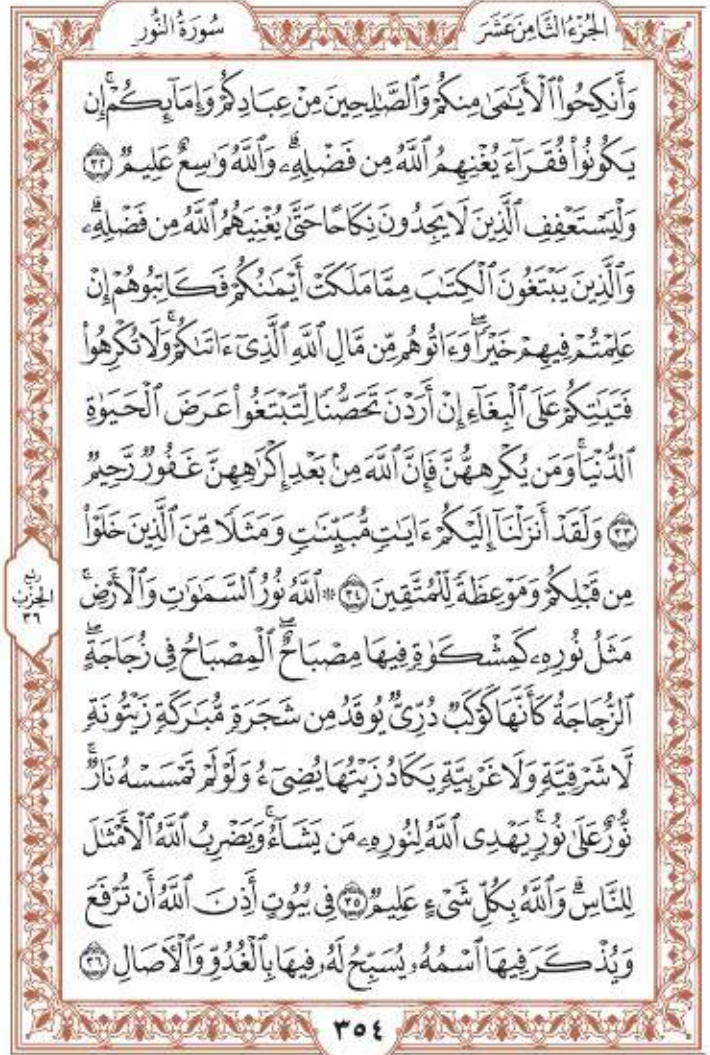 الجُزْءُ الثَّامِنَ عَشَرَ
سُورَةُ النُّور
وَأَنكِحُوا۟ ٱلْأَيَـٰمَىٰ مِنكُمْ وَٱلصَّـٰلِحِينَ مِنْ عِبَادِكُمْ وَإِمَآئِكُمْ ۚ إِن
يَكُونُوا۟ فُقَرَآءَ يُغْنِهِمُ ٱللَّهُ مِن فَضْلِهِۦ ۗ وَٱللَّهُ وَٰسِعٌ عَلِيمٌ ٣٢
وَلْيَسْتَعْفِفِ ٱلَّذِينَ لَا يَجِدُونَ نِكَاحًا حَتَّىٰ يُغْنِيَهُمُ ٱللَّهُ مِن فَضْلِهِۦ ۗ
وَٱلَّذِينَ يَبْتَغُونَ ٱلْكِتَـٰبَ مِمَّا مَلَكَتْ أَيْمَـٰنُكُمْ فَكَاتِبُوهُمْ إِنْ
عَلِمْتُمْ فِيهِمْ خَيْرًا ۖ وَءَاتُوهُم مِّن مَّالِ ٱللَّهِ ٱلَّذِىٓ ءَاتَىٰكُمْ ۚ وَلَا تُكْرِهُوا۟
فَتَيَـٰتِكُمْ عَلَى ٱلْبِغَآءِ إِنْ أَرَدْنَ تَحَصُّنًا لِّتَبْتَغُوا۟ عَرَضَ ٱلْحَيَوٰةِ
ٱلدُّنْيَا ۚ وَمَن يُكْرِههُّنَّ فَإِنَّ ٱللَّهَ مِنۢ بَعْدِ إِكْرَٰهِهِنَّ غَفُورٌ رَّحِيمٌ
٣٣ وَلَقَدْ أَنزَلْنَآ إِلَيْكُمْ ءَايَـٰتٍ مُّبَيِّنَـٰتٍ وَمَثَلًا مِّنَ ٱلَّذِينَ خَلَوْا۟
مِن قَبْلِكُمْ وَمَوْعِظَةً لِّلْمُتَّقِينَ ٣٤ ۞ ٱللَّهُ نُورُ ٱلسَّمَـٰوَٰتِ وَٱلْأَرْضِ ۚ
ربع
الحِزْبِ
٣٦
مَثَلُ نُورِهِۦ كَمِشْكَوٰةٍ فِيهَا مِصْبَاحٌ ۖ ٱلْمِصْبَاحُ فِى زُجَاجَةٍ ۖ
ٱلزُّجَاجَةُ كَأَنَّهَا كَوْكَبٌ دُرِّىٌّ يُوقَدُ مِن شَجَرَةٍ مُّبَـٰرَكَةٍ زَيْتُونَةٍ
لَّا شَرْقِيَّةٍ وَلَا غَرْبِيَّةٍ يَكَادُ زَيْتُهَا يُضِىٓءُ وَلَوْ لَمْ تَمْسَسْهُ نَارٌ ۚ
نُّورٌ عَلَىٰ نُورٍ ۗ يَهْدِى ٱللَّهُ لِنُورِهِۦ مَن يَشَآءُ ۚ وَيَضْرِبُ ٱللَّهُ ٱلْأَمْثَـٰلَ
لِلنَّاسِ ۗ وَٱللَّهُ بِكُلِّ شَىْءٍ عَلِيمٌ ٣٥ فِى بُيُوتٍ أَذِنَ ٱللَّهُ أَن تُرْفَعَ
وَيُذْكَرَ فِيهَا ٱسْمُهُۥ يُسَبِّحُ لَهُۥ فِيهَا بِٱلْغُدُوِّ وَٱلْـَٔاصَالِ ٣٦
٣٥٤